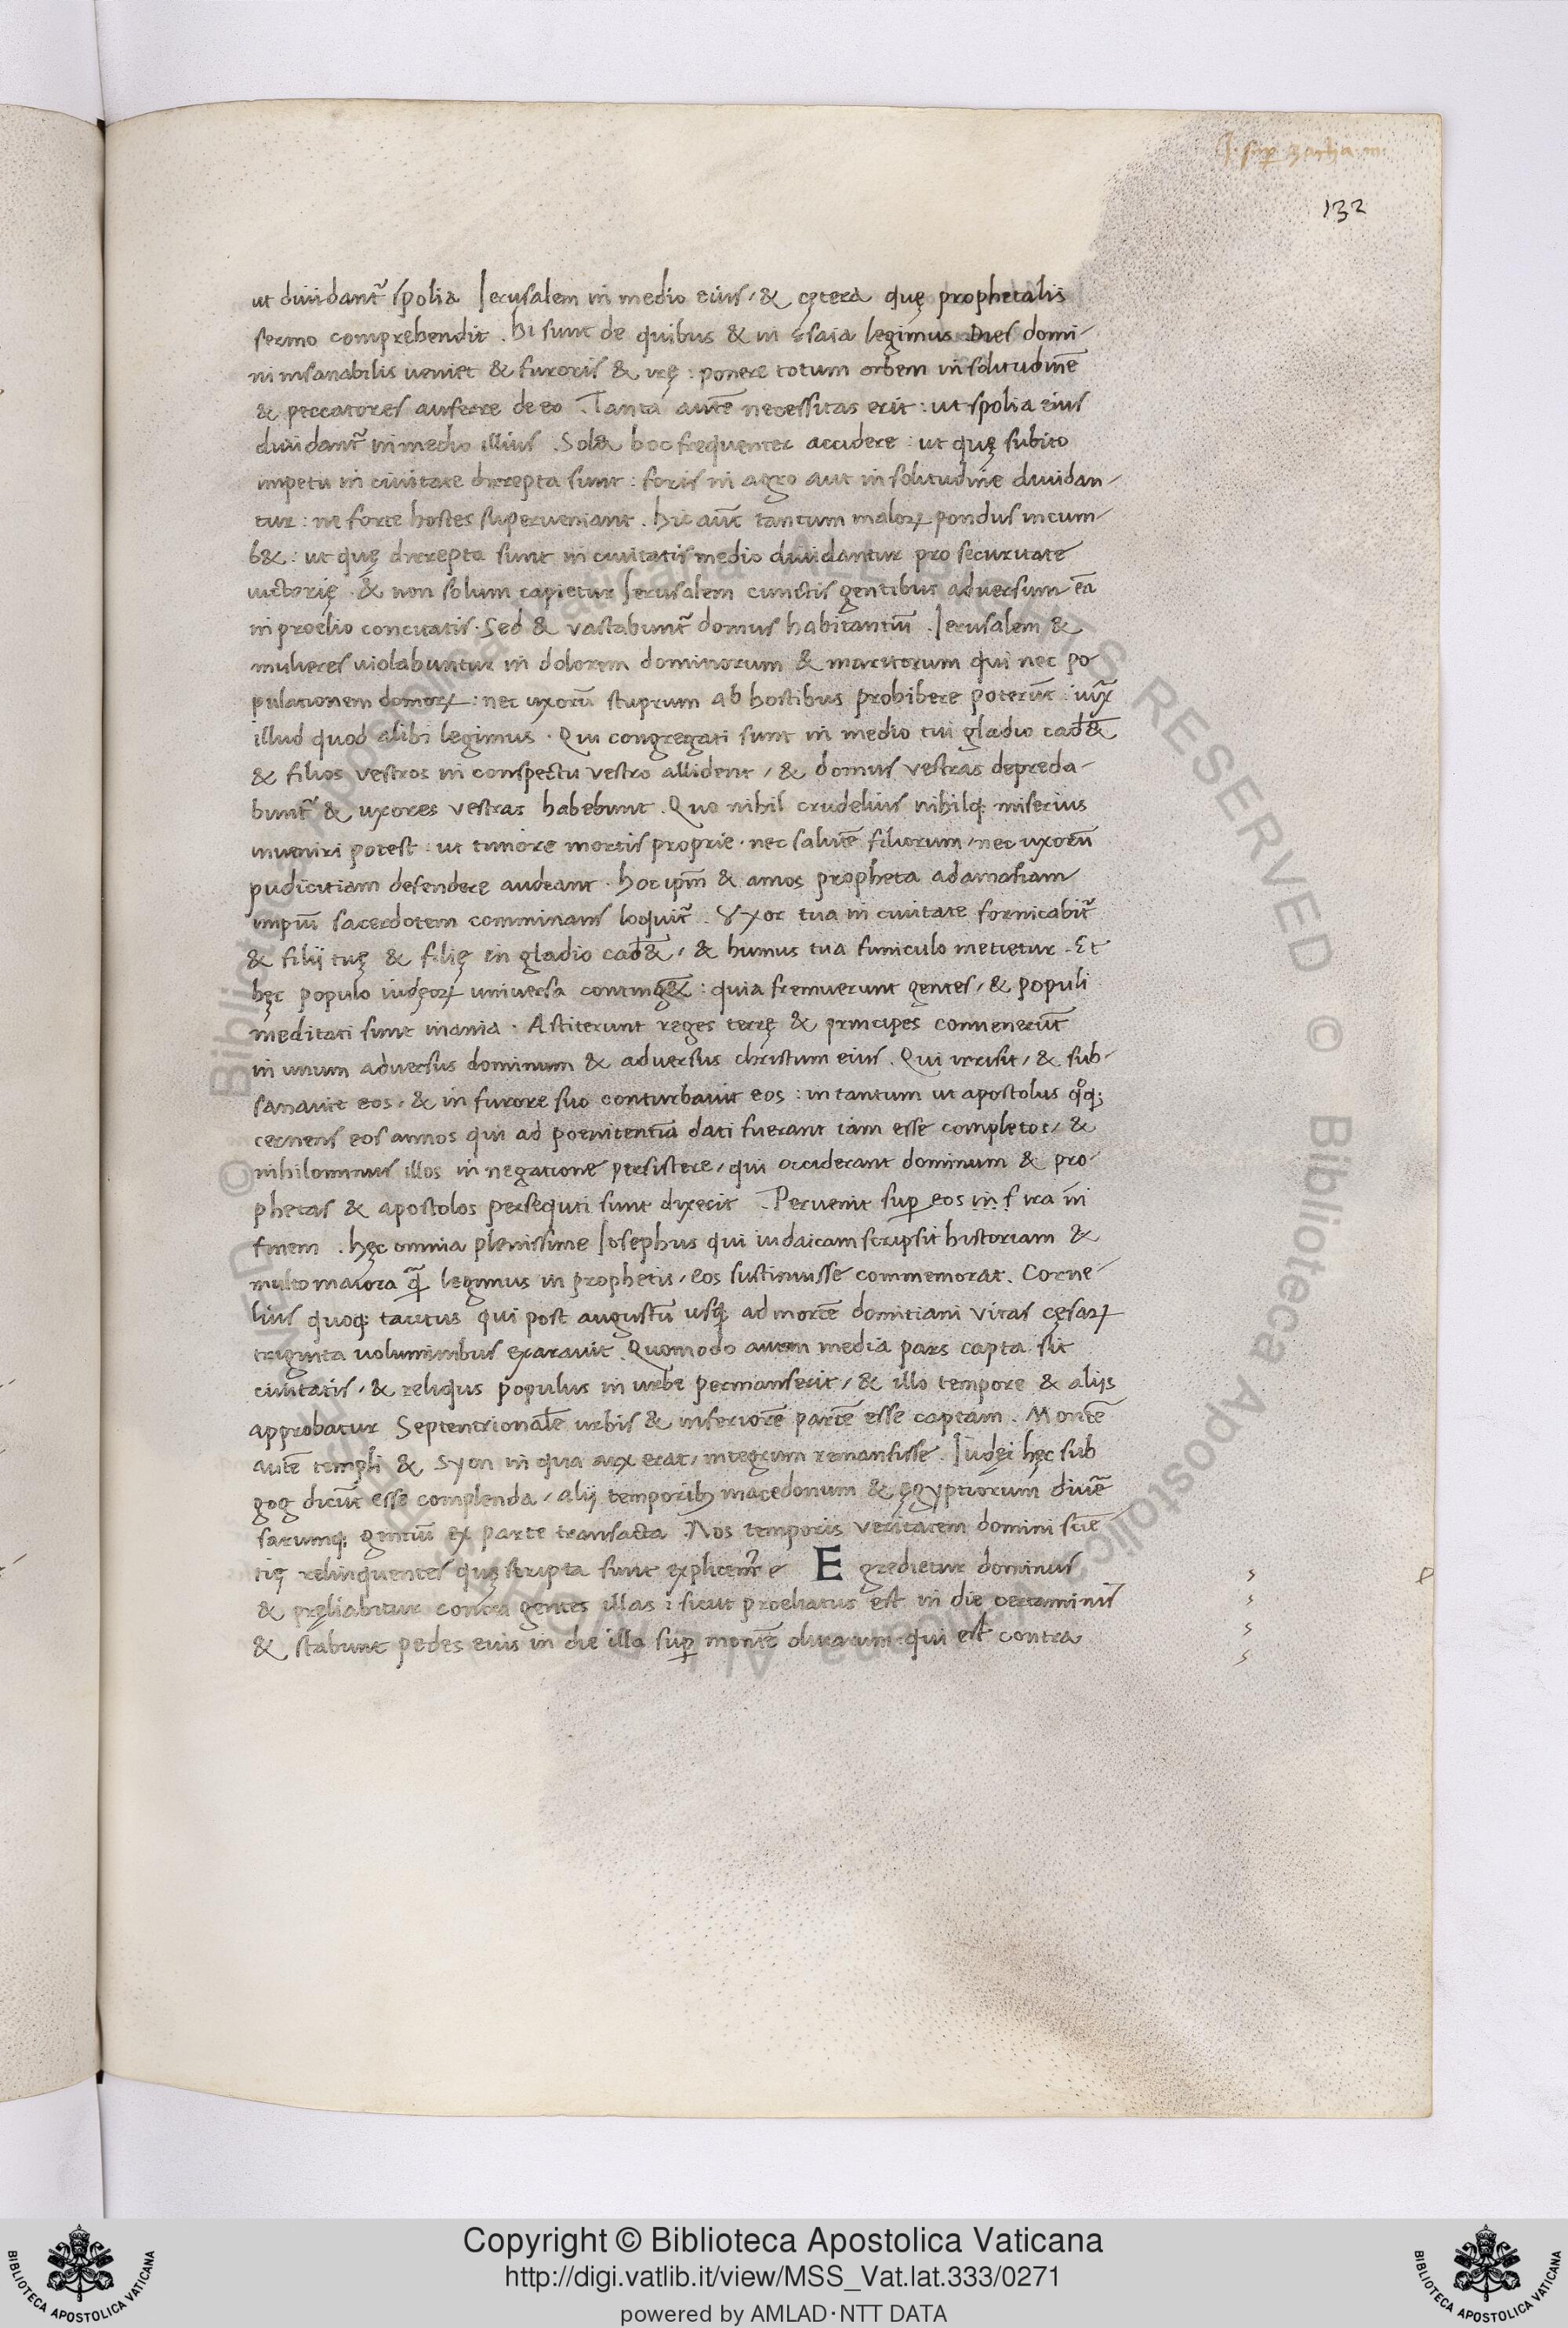 132
ut diuidant̃ spolia Ierusalem in medio eius / & cętera quę prophetalis
sermo comprehendit . Hi sunt de quibus & in Esaia legimus Dies domi-
ni insanabilis ueniet & furoris & irę : ponere totum orbem in solitudinē
& peccatores auferre de eo . Tanta autē necessitas erit : ut spolia eius
diuidant̃ in medio illius . Sol& hoc frequenter accidere : ut quę subito
impetu in ciuitate direpta sunt : foris in agro aut in solitudine diuidan-
tur : ne forte hostes superueniant . Hic aūt tantum maloꝝ pondus incum-
b& : ut quę direpta sunt in ciuitatis medio diuidantur pro securitate
uictorię . & non solum capietur Ierusalem cunctis gentibus adversum eā
in proelio concitatis . Sed & vastabunt̃ domus habitantiū . Ierusalem &
mulieres uiolabuntur in dolorem dominorum & maritorum qui nec po-
pulationem domoꝝ : nec uxorū stuprum ab hostibus prohibere poterūt : iux̄
illud quod alibi legimus . Qui congregati sunt in medio tui gladio cad&̄
& filios vestros in conspectu vestro allident / & domus vestras depreda-
bunt̃ & uxores vestras habebunt . Quo nihil crudelius nihilq; miserius
inueniri potest : ut timore mortis proprie . nec salutē filiorum / nec uxorū
pudicitiam defendere audeant . Hoc ipm̄ & amos propheta ad amasiam
impiū sacerdotem comminans loquit̃ . Vxor tua in ciuitate fornicabit̃
& filij tuę & filię in gladio cad&̄ / & humus tua funiculo metietur . Et
hęc populo iudęoꝝ universa conting&̄ : quia fremuerunt gentes / & populi
meditati sunt inania . Astiterunt reges terrę & principes conuenerūt
in unum adversus dominum & adversus christum eius . Qui irrisit / & sub-
sanauit eos / & in furore suo conturbauit eos : in tantum ut apostolus qͦq;
cernens eos annos qui ad poenitentiā dati fuerant iam esse completos / &
nihilominus illos in negatione persistere / qui occiderant dominum & pro-
phetas & apostolos persequti sunt dixerit . Peruenit sup̱ eos in f ira in
finem . Hęc omnia plenissime Iosephus qui iudaicam scripsit historiam &
multo maiora q̃ legimus in prophetis / eos sustinuisse commemorat . Corne-
lius quoq; tacitus qui post augustū usq; ad mortē domitiani vitas cęsaꝝ
triginta uoluminibus exarauit . Quomodo autem media pars capta sit
ciuitatis / & reliqus populus in urbe permanserit / & illo tempore & alijs
approbatur Septentrionalē urbis & inferiorē partē esse captam . Montē
autē templi & Syon in qua arx erat / integrum remansisse . Iudęi hęc sub
gog dicūt esse complenda / alij temporibꝫ macedonum & ęgyptiorum diuē-
sarumq; gentiū ex parte transacta . Nos temporis veritatem domini sciē-
tię relinquentes quę scripta sunt explicem̃
E gredietur dominus
& pręliabitur contra gentes illas : sicut proeliatus est in die certaminis
& stabunt pedes eius in die illa sup̱ montē oliuarum qui est contra
© Biblioteca Apostolica Vaticana ALL RIGHTS RESERVED
Copyright © Biblioteca Apostolica Vaticana
http://digi.vatlib.it/view/MSS_Vat.lat.333/0271
powered by AMLAD·NTT DATA
BIBLIOTECA APOSTOLICA VATICANA
BIBLIOTECA APOSTOLICA VATICANA